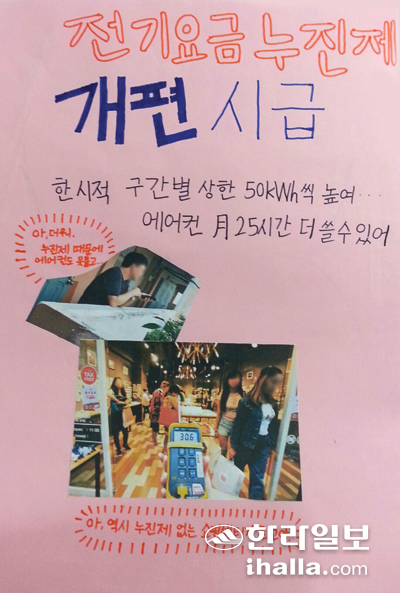 전기요금 누진제
개편 시급
한시적 구간별 상한 50kWh씩 높여…
에어컨 月 25시간 더 쓸 수 있어
아, 더워.
누진제 때문에
에어컨도 못틀고..
TAX
30.6
아, 역시 누진제 없는
한라일보
ihalla.com